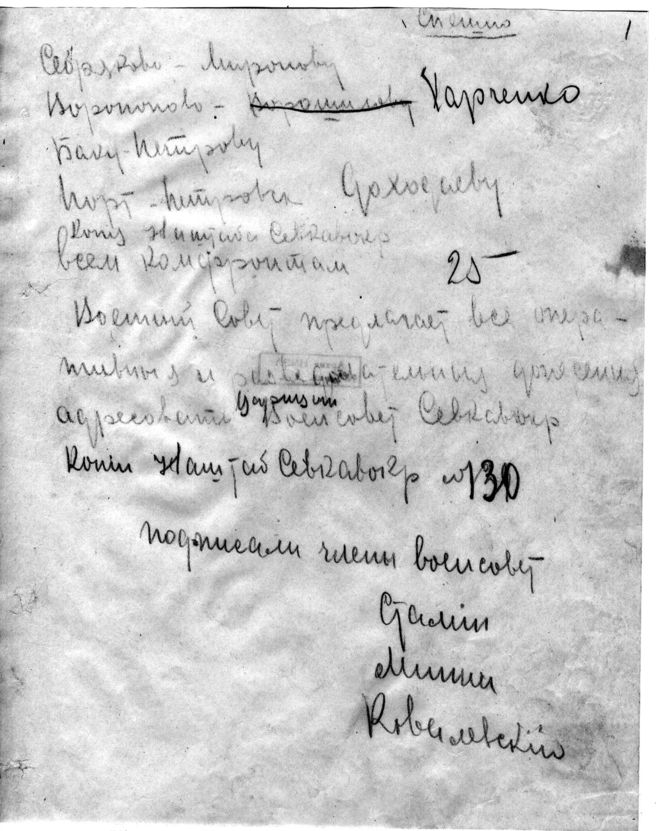 Спешно
1
Себряково - Миронову
Воропоново - Ворошилову Харченко
Баку - Петрову
Порт - Петровск Доходаеву
Копия Наштабу Севкавокр
всем Комфронтам 25
Военный Совет предлагает все опера-
тивныя и разведывательныя донесения
адресовать Царицын Военсовет Севкавокр
Копии Наштаб Севкавокр № 130
подписали члены военсовет
Сталин
Минин
Ковалевский